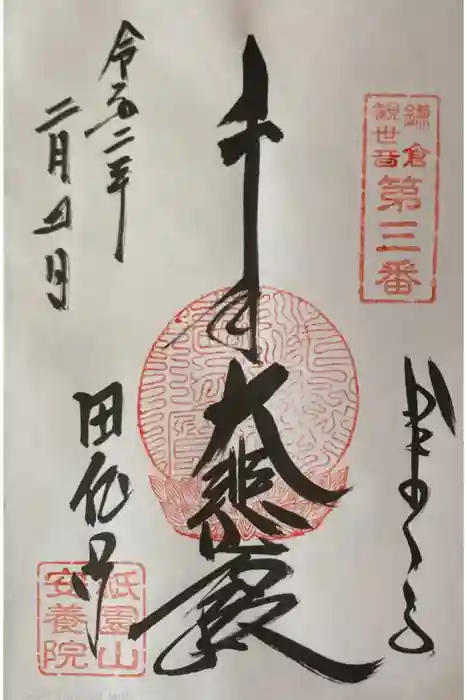 鎌倉
観世音
第三番
千手大悲殿
令和二年
二月五日
田代寺
祇園山
安養院